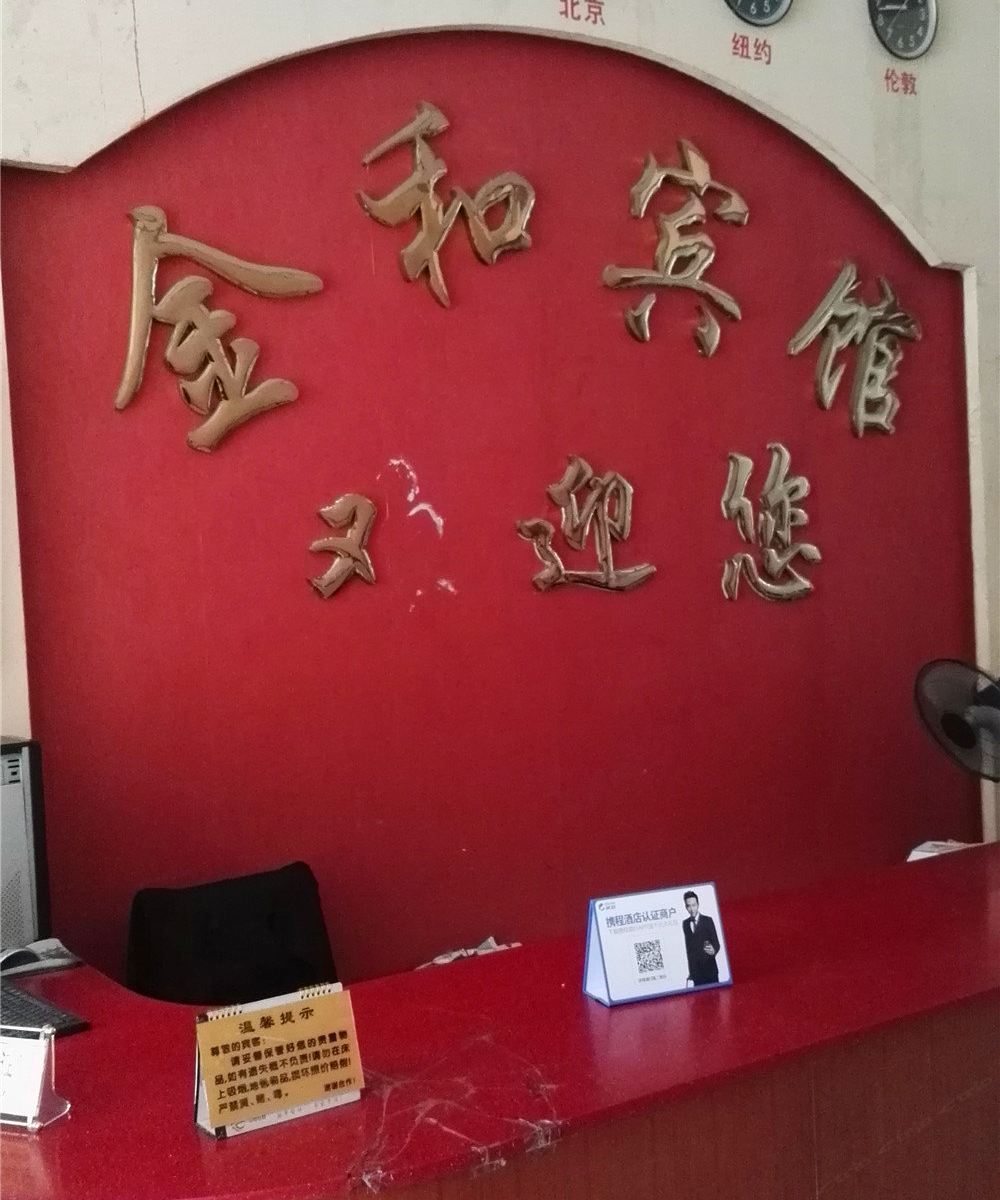 北京
纽约
伦敦
金和宾馆
又迎您
携程酒店认证商户
温馨提示
尊敬的宾客:
请妥善保管好您的贵重物
品,如有遗失概不负责!请勿在床
上吸烟,地毯物品,损坏照价赔偿!
严禁黄、赌、毒。
谢谢合作!